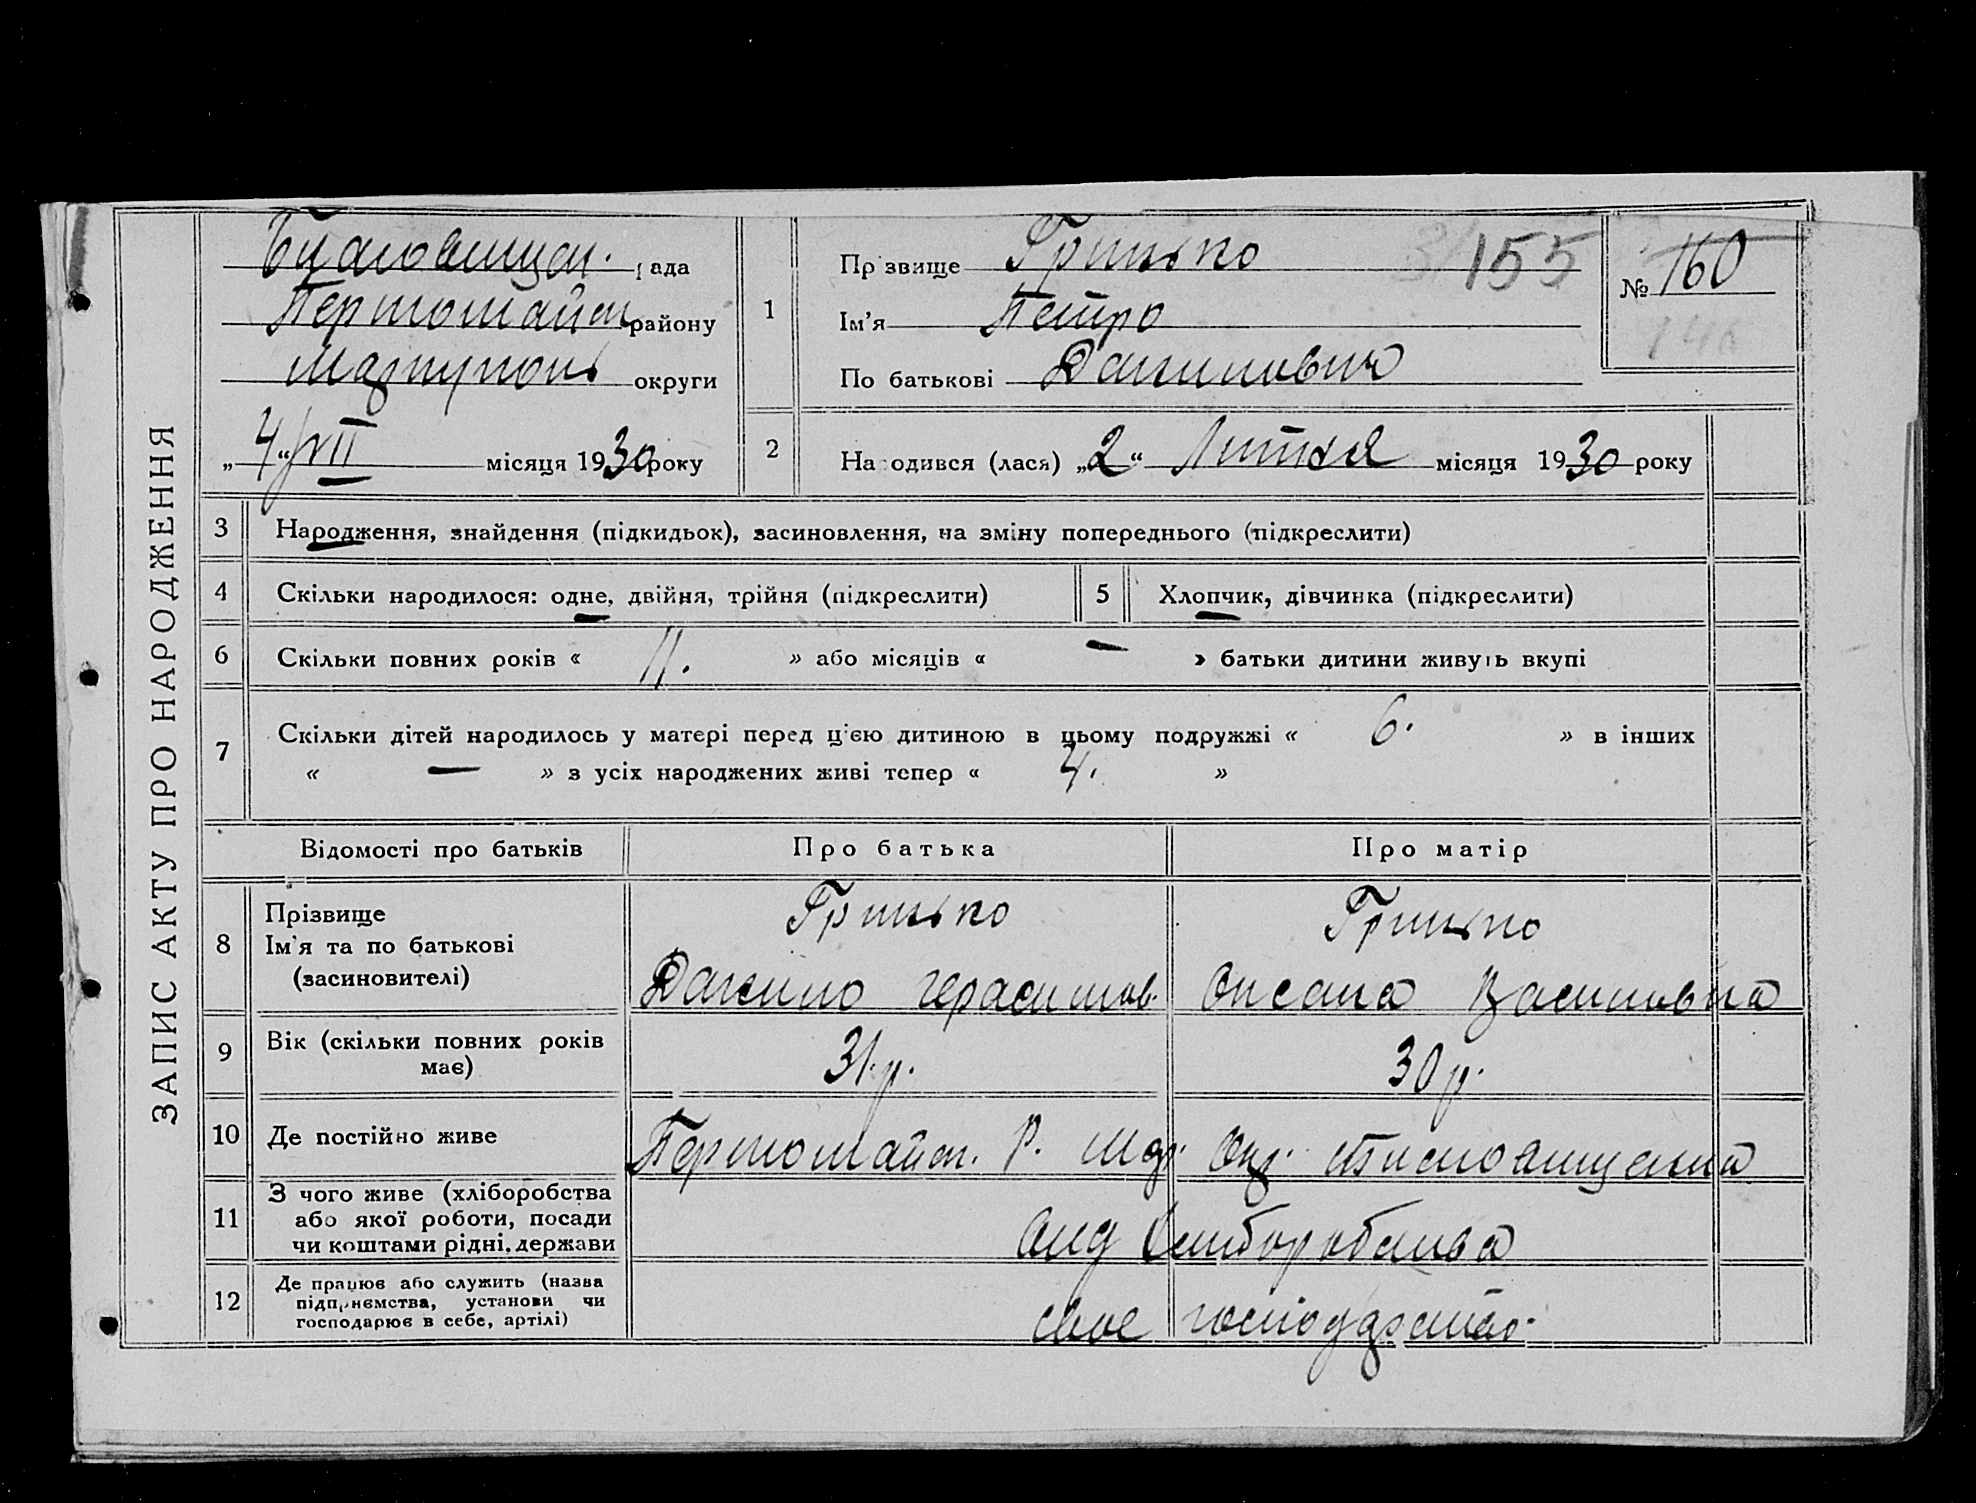 ЗАПИС АКТУ ПРО НАРОДЖЕННЯ
рада
Первомайск району
Маріупольс округи
„4“ VII місяця 1930 року
1
Прізвище Грицько
155
Ім'я Петро
По батькові Данилович
№ 160
2 Народився (лася) „2“ Липня місяця 1930 року
3 Народження, знайдення (підкидьок), засиновлення, на зміну попереднього (підкреслити)
4 Скільки народилося: одне, двійня, трійня (підкреслити) 5 Хлопчик, дівчинка (підкреслити)
6 Скільки повних років « 11. » або місяців « — » батьки дитини живуть вкупі
7 Скільки дітей народилось у матері перед ц'єю дитиною в цьому подружжі « 6. » в інших
« — » з усіх народжених живі тепер « 4. »
Відомості про батьків Про батька Про матір
8 Прізвище
Ім'я та по батькові
(засиновителі)
Грицько
Данило Герасимов.
Грицько
Оксана Василивна
9 Вік (скільки повних років має) 31.р. 30 р.
10 Де постійно живе Первомайск. Р. Окр.
11 З чого живе (хліборобства
або якої роботи, посади
чи коштами рідні, держави
від хліборобства
12 Де працює або служить (назва
підприємства, установи чи
господарює в себе, артілі)
свое господарство.